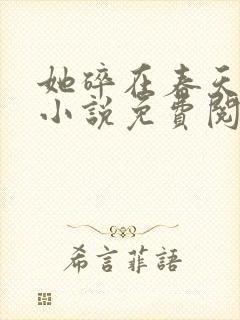 她碎在春天
小說免費閱
希言菲語